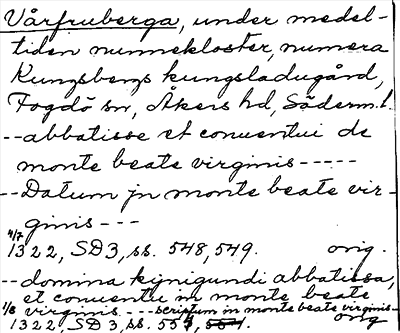 Vårfruberga, under medel-
tiden nunnekloster, numera
Kungsbergs kungsladugård,
Fogdö sn, Åkers hd, Söderm.l.
--abbatisse et conuentui de
monte beate virginis-----
--Datum jn monte beate vir-
ginis---
4/7
1322, SD3, ss. 548, 549. orig.
--domina kynigundi abbatissa,
et conuentu in monte beate
1/8 virginis.----scriptum in monte beate virginis-
1322, SD 3, ss. 554. orig